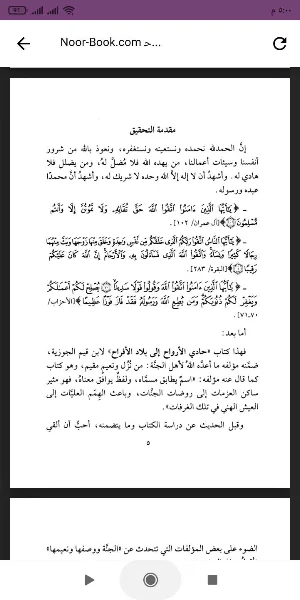 ٥:٠٠ م
Noor-Book.com حـ...
مقدمة التحقيق
إنَّ الحمدلله نحمده ونستعينه ونستغفره، ونعوذ بالله من شرور
أنفسنا وسيئات أعمالنا، من يهده الله فلا مُضلَّ لهُ، ومن يضلل فلا
هادي له. وأشهدُ أن لا إله إلاَّ الله وحده لا شريك له، وأشهدُ أنَّ محمدًا
عبده ورسوله.
- ﴿ يَٰٓأَيُّهَا ٱلَّذِينَ ءَامَنُوا۟ ٱتَّقُوا۟ ٱللَّهَ حَقَّ تُقَاتِهِۦ وَلَا تَمُوتُنَّ إِلَّا وَأَنتُم
مُّسْلِمُونَ ﴾ [آل عمران/ ١٠٢].
- ﴿ يَٰٓأَيُّهَا ٱلنَّاسُ ٱتَّقُوا۟ رَبَّكُمُ ٱلَّذِى خَلَقَكُم مِّن نَّفْسٍ وَٰحِدَةٍ وَخَلَقَ مِنْهَا زَوْجَهَا وَبَثَّ مِنْهُمَا
رِجَالًا كَثِيرًا وَنِسَآءً وَٱتَّقُوا۟ ٱللَّهَ ٱلَّذِى تَسَآءَلُونَ بِهِۦ وَٱلْأَرْحَامَ إِنَّ ٱللَّهَ كَانَ عَلَيْكُمْ
رَقِيبًا ﴾ [البقرة/ ٢٨٣].
- ﴿ يَٰٓأَيُّهَا ٱلَّذِينَ ءَامَنُوا۟ ٱتَّقُوا۟ ٱللَّهَ وَقُولُوا۟ قَوْلًا سَدِيدًا ۝ يُصْلِحْ لَكُمْ أَعْمَٰلَكُمْ
وَيَغْفِرْ لَكُمْ ذُنُوبَكُمْ وَمَن يُطِعِ ٱللَّهَ وَرَسُولَهُۥ فَقَدْ فَازَ فَوْزًا عَظِيمًا ﴾ [الأحزاب/
٧٠، ٧١].
أما بعد:
فهذا كتاب «حادي الأرواح إلى بلاد الأفراح» لابن قيم الجوزية،
ضمَّنه مؤلفه ما أعدَّه اللهُ لأهل الجنَّة: من نُزُل ونعيم مقيم، وهو كتاب
كما قال عنه مؤلفه: «اسمٌ يطابق مسمَّاه، ولفظٌ يوافق معناهُ، فهو مثير
ساكن العزمات إلى روضات الجنَّات، وباعث الهِمَم العليَّات إلى
العيش الهني في تلك الغرفات».
وقبل الحديث عن دراسة الكتاب وما يتضمنه، أحبُّ أن ألقي
٥
الضوء على بعض المؤلفات التي تتحدث عن «الجنَّة ووصفها ونعيمها»